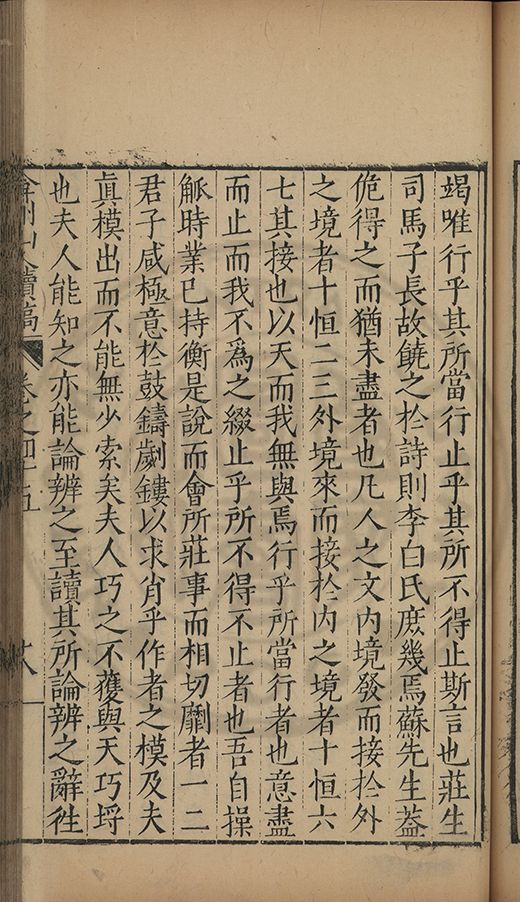 竭唯行乎其所當行止乎其所不得止斯言也莊生
司馬子長故饒之於詩則李白氏庶幾焉蘇先生葢
佹得之而猶未盡者也凡人之文內境發而接於外
之境者十恒二三外境來而接於內之境者十恒六
七其接也以天而我無與焉行乎所當行者也意盡
而止而我不爲之綴止乎所不得不止者也吾自操
觚時業已持衡是說而會所莊事而相切劘者一二
君子咸極意於鼓鑄劌鏤以求肖乎作者之模及夫
眞模出而不能無少索矣夫人巧之不獲與天巧埒
也夫人能知之亦能論辨之至讀其所論辨之辭徃
弇州山人續稿 卷之四十五 六